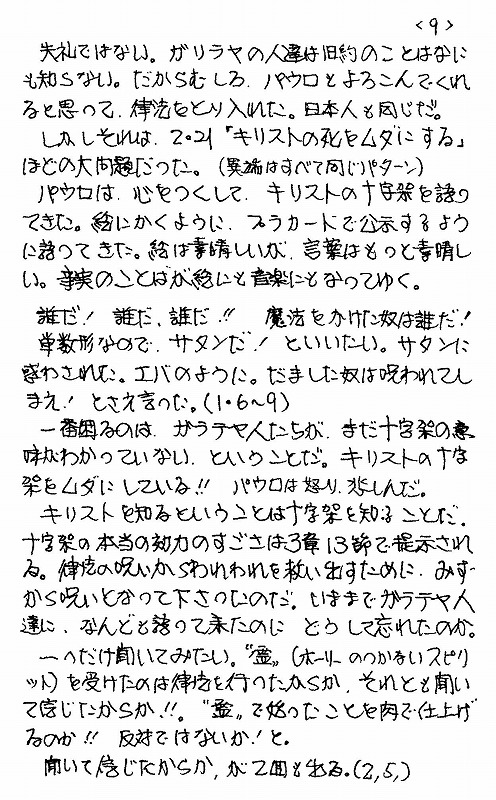 <9>
失礼ではない。ガリラヤの人達は旧約のことはなに
も知らない。だからむしろ、パウロとよろこんでくれ
ると思って、律法をとり入れた。日本人も同じだ。
しかしそれは、2・21「キリストの死をムダにする」
ほどの大問題だった。(異端はすべて同じパターン)
パウロは、心をつくして、キリストの十字架を語っ
てきた。絵にかくように、プラカードで公示するよう
に語ってきた。絵は素晴しいが、言葉はもっと素晴し
い。真実のことばが絵にも音楽にもなってゆく。
誰だ!誰だ、誰だ!! 魔法をかけた奴は誰だ!
単数形なので、サタンだ!といいたい。サタンに
惑わされた。エバのように。だました奴は呪われてし
まえ!とさえ言った。(1・6~9)
一番困るのは、ガラテヤ人たちが、まだ十字架の意
味がわかっていない、ということだ。キリストの十字
架をムダにしている!! パウロは怒り、悲しんだ。
キリストを知るということは十字架を知ることだ。
十字架の本当の効力のすごさは3章13節で提示され
る。律法の呪いからわれわれを救い出すために、みず
から呪いとなって下さったのだ。いままでガラテヤ人
達に、なんども語って来たのに どうして忘れたのか。
一つだけ聞いてみたい。"霊"(ホーリーのつかないスピリ
ット)を受けたのは律法を行ったからか、それとも聞い
て信じたからか!!。"霊"で始ったことを肉で仕上げ
るのか!! 反対ではないか!と。
聞いて信じたからか、が2回も出る。(2,5,)